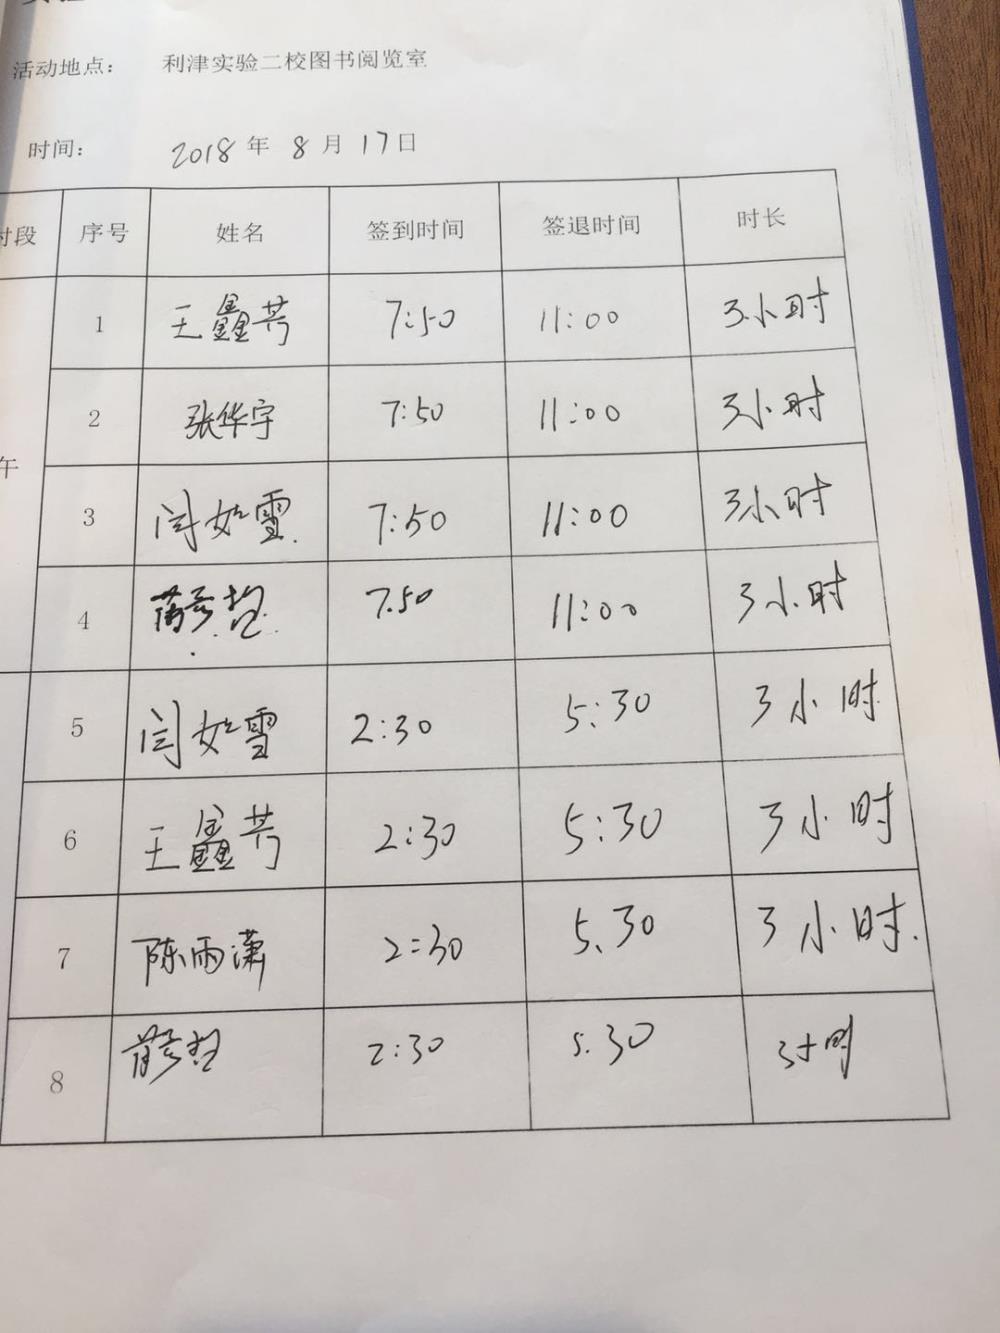 活动地点： 利津实验二校图书阅览室
时间： 2018 年 8 月 17 日
时段 序号 姓名 签到时间 签退时间 时长
1 王鑫芳 7:50 11:00 3小时
午
2 张华宇 7:50 11:00 3小时
3 闫如雪 7:50 11:00 3小时
4 7.50 11:00 3小时
5 闫如雪 2:30 5:30 3小时
6 王鑫芳 2:30 5:30 3小时
7 陈雨潇 2:30 5.30 3小时.
8 2:30 5.30 3小时